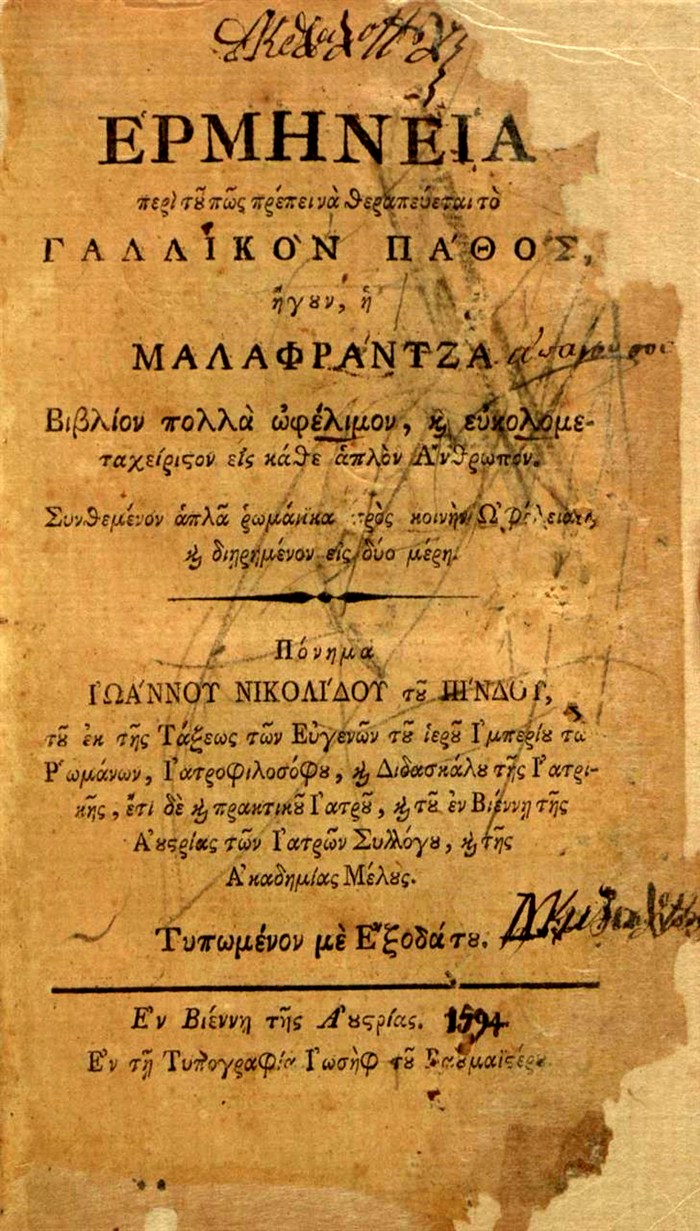 ἙΡΜΗΝΕΊΑ
περὶ τȣ͂ πῶς πρέπει νὰ θεραπεύεται τὸ
ΓΑΛΛΙΚῸΝ ΠΆΘΟΣ,
ἤγȣν, ἡ
ΜΑΛΑΦΡΆΝΤΖΑ
Βιβλίον πολλὰ ὠφέλιμον, ϗ εὐκολομε-
ταχείριϛον εἰς κάθε ἁπλὸν Ἄνθρωπον.
Συνθεμένον ἁπλᾶ ῥωμαίϊκα πρὸς κοινὴν Ὠφέλειαν,
ϗ διῃρημένον εἰς δύο μέρη.
Πόνημα
ἸΩΆΝΝΟΥ ΝΙΚΟΛΊΔΟΥ τȣ͂ ΠΊΝΔΟΥ,
τȣ͂ ἐκ τῆς Τάξεως τῶν Εὐγενῶν τȣ͂ ἱερȣ͂ Ἰμπερίȣ τῶ
Ῥωμάνων, Ἰατροφιλοσόφȣ, ϗ Διδασκάλȣ τῆς Ἰατρι-
κῆς, ἔτι δὲ ϗ πρακτικȣ͂ Ἰατρȣ͂, ϗ τȣ͂ ἐν Βιέννῃ τῆς
Ἀȣϛρίας τῶν Ἰατρῶν Συλλόγȣ, ϗ τῆς
Ἀκαδημίας Μέλȣς.
Τυπωμένον μὲ Ἔξοδά τȣ.
Ἐν Βιέννῃ τῆς Ἀȣϛρίας. 1794
Ἐν τῇ Τυπογραφίᾳ Ἰωσὴφ τȣ͂ Βαȣμαϊϛέρȣ